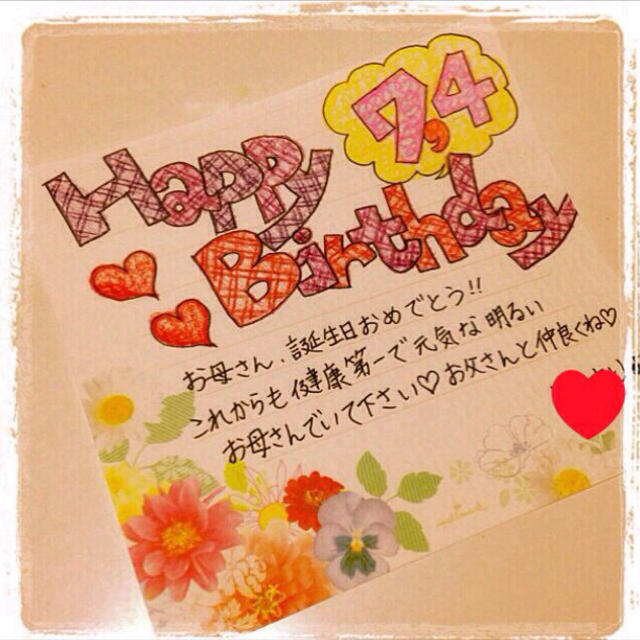 7,4
Happy
Birthday
お母さん、誕生日おめでとう!!
これからも健康第一で元気な明るい
お母さんでいて下さい♡お父さんと仲良くね♡
Hallmark